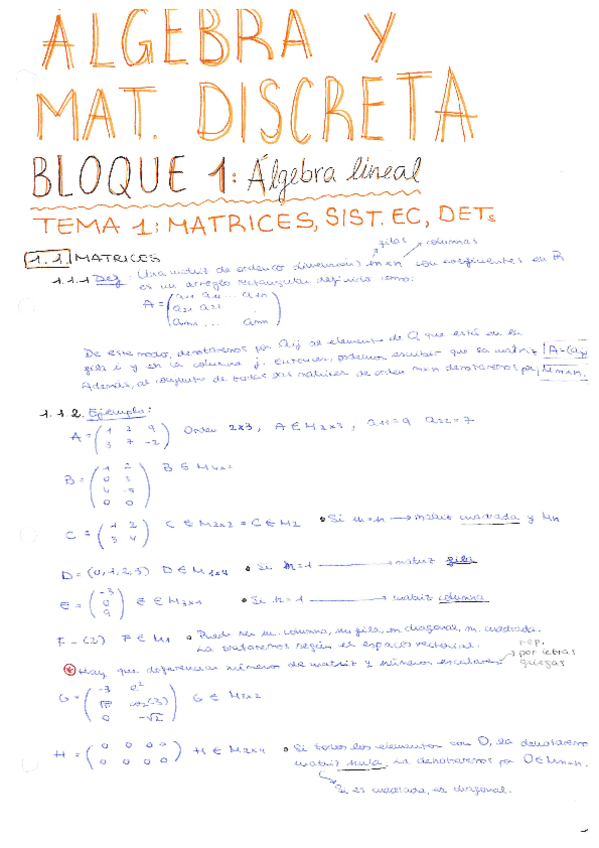 ÁLGEBRA Y
MAT. DISCRETA
BLOQUE 1: Álgebra lineal
TEMA 1: MATRICES, SIST. EC, DETs
filas columnas
1.1. MATRICES
1.1.1 Def: Una matriz de orden (o dimensión) m×n con coeficientes en R
es un arreglo rectangular definido como:
A =
De este modo, denotaremos por aij al elemento de que está en la
fila i y en la columna j. Entonces, podemos escribir que la matriz A=(aij)
Además, al conjunto de todas las matrices de orden m×n denotaremos por Mm×n.
1.1.2. Ejemplo:
A = (1 2 9
3 7 -2) Orden 2x3, A ∈ M2x3, a22=7
B = B ∈ M4x2
C = (1 2
3 4) C ∈ M2x2 = C ∈ M2 • Si m=n → matriz cuadrada y Mn
D = (0,1,2,3) D ∈ • Si m=1 → matriz fila
E = (-3
0
9) E ∈ M3x1 • Si n=1 → matriz columna
F = (2) F ∈ M1 • Puede ser m. columna, m. fila, m. diagonal, m. cuadrada.
La trataremos según el espacio vectorial.
rep.
por letras
griegas
Hay que diferenciar números de matriz y números escalares
G = G ∈
H = (0 0 0 0
0 0 0 0) H ∈ M2x4 • Si todos los elementos son 0, la denotaremos
matriz nula. La denotaremos por O ∈ Mm×n.
Si es cuadrada, es diagonal.